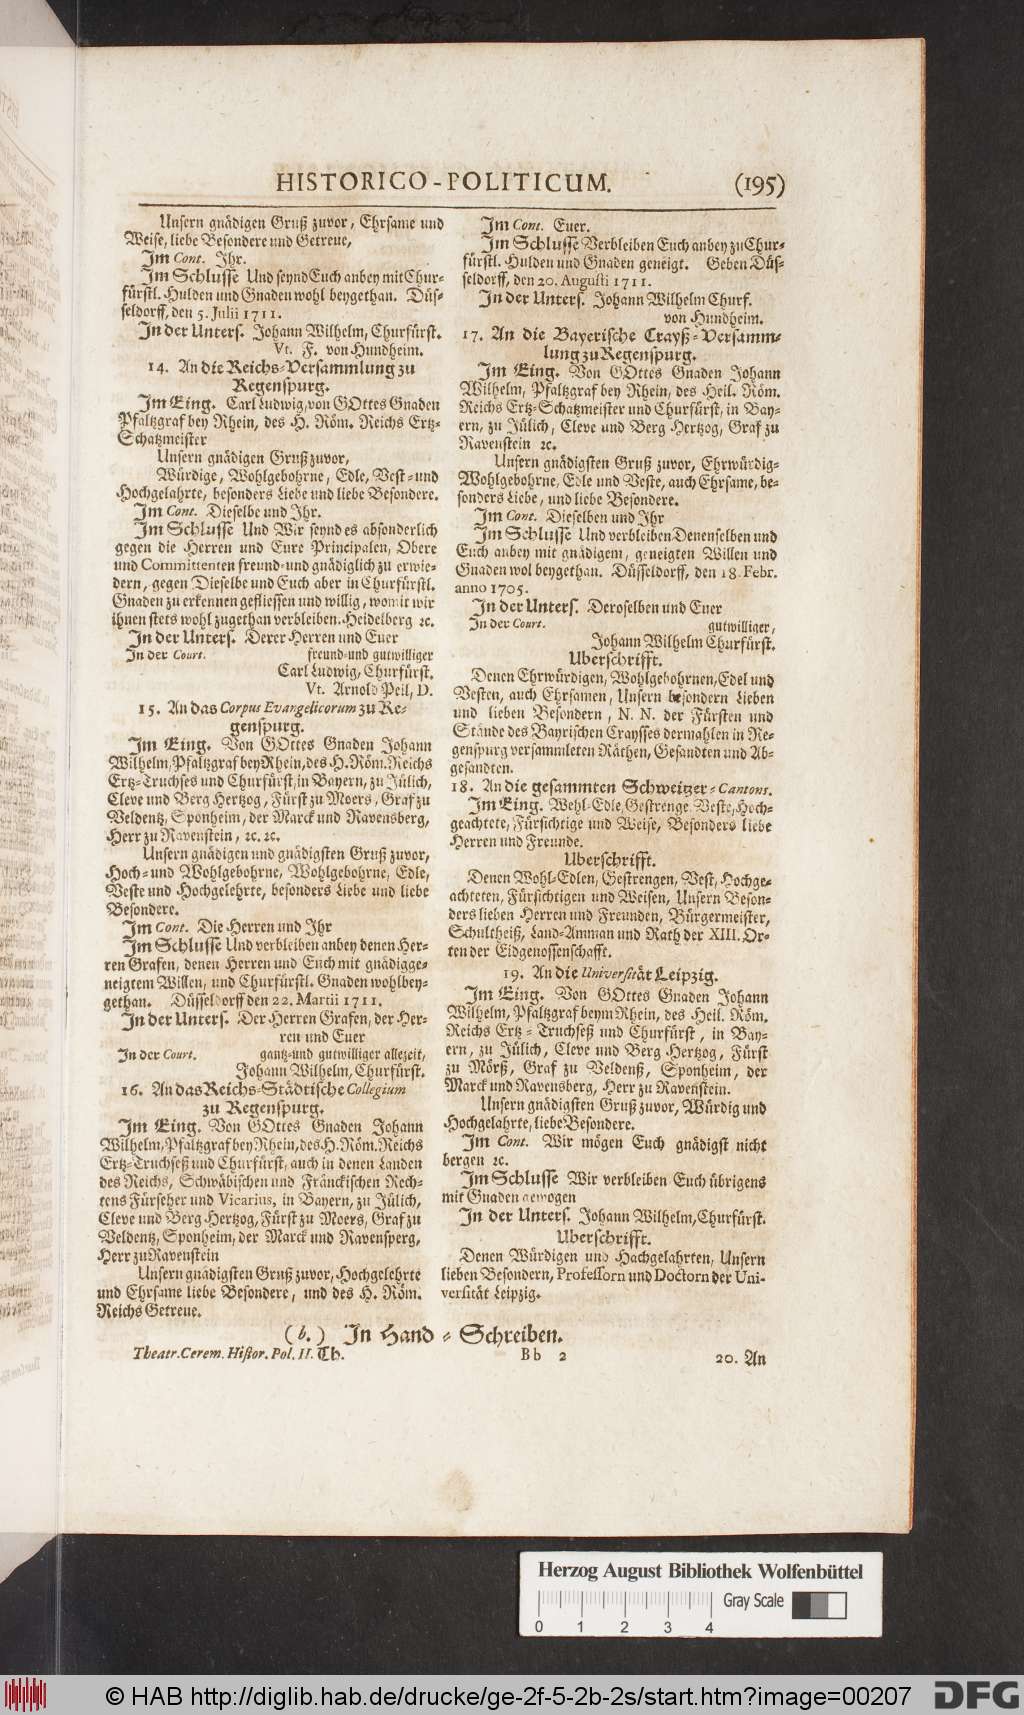 HISTORICO-POLITICUM. (195)
Unsern gnädigen Gruß zuvor, Ehrsame und
Weise, liebe Besondere und Getreue,
Im Cont. Ihr.
Im Schlusse Und seynd Euch anbey mit Chur-
fürstl. Hulden und Gnaden wohl beygethan. Düs-
seldorff, den 5. Julii 1711.
In der Unters. Johann Wilhelm, Churfürst.
Vt. F. von Hundheim.
14. An die Reichs-Versammlung zu
Regenspurg.
Im Eing. Carl Ludwig, von GOttes Gnaden
Pfaltzgraf bey Rhein, des H. Röm. Reichs Ertz-
Schatzmeister
Unsern gnädigen Gruß zuvor,
Würdige, Wohlgebohrne, Edle, Vest- und
Hochgelahrte, besonders Liebe und liebe Besondere.
Im Cont. Dieselbe und Ihr.
Im Schlusse Und Wir seynd es absonderlich
gegen die Herren und Eure Principalen, Obere
und Committenten freund- und gnädiglich zu erwie-
dern, gegen Dieselbe und Euch aber in Churfürstl.
Gnaden zu erkennen geflissen und willig, womit wir
ihnen stets wohl zugethan verbleiben. Heidelberg ꝛc.
In der Unters. Derer Herren und Euer
In der Court. freund- und gutwilliger
Carl Ludwig, Churfürst.
Vt. Arnold Peil, D.
15. An das Corpus Evangelicorum zu Re-
genspurg.
Im Eing. Von GOttes Gnaden Johann
Wilhelm, Pfaltzgraf bey Rhein, des H. Röm. Reichs
Ertz-Truchses und Churfürst, in Bayern, zu Jülich,
Cleve und Berg Hertzog, Fürst zu Moers, Graf zu
Veldentz, Sponheim, der Marck und Ravensberg,
Herr zu Ravenstein, ꝛc. ꝛc.
Unsern gnädigen und gnädigsten Gruß zuvor,
Hoch- und Wohlgebohrne, Wohlgebohrne, Edle,
Veste und Hochgelehrte, besonders Liebe und liebe
Besondere.
Im Cont. Die Herren und Ihr
Im Schlusse Und verbleiben anbey denen Her-
ren Grafen, denen Herren und Euch mit gnädigge-
neigtem Willen, und Churfürstl. Gnaden wohlbey-
gethan. Düsseldorff den 22. Martii 1711.
In der Unters. Der Herren Grafen, der Her-
ren und Euer
In der Court. gantz- und gutwilliger allezeit,
Johann Wilhelm, Churfürst.
16. An das Reichs-Städtische Collegium
zu Regenspurg.
Im Eing. Von GOttes Gnaden Johann
Wilhelm, Pfaltzgraf bey Rhein, des H. Röm. Reichs
Ertz-Truchseß und Churfürst, auch in denen Landen
des Reichs, Schwäbischen und Fränckischen Rech-
tens Fürseher und Vicarius, in Bayern, zu Jülich,
Cleve und Berg Hertzog, Fürst zu Moers, Graf zu
Veldentz, Sponheim, der Marck und Ravensperg,
Herr zu Ravenstein
Unsern gnädigsten Gruß zuvor, Hochgelehrte
und Ehrsame liebe Besondere, und des H. Röm.
Reichs Getreue.
Im Cont. Euer.
Im Schlusse Verbleiben Euch anbey zu Chur-
fürstl. Hulden und Gnaden geneigt. Geben Düs-
seldorff, den 20. Augusti 1711.
In der Unters. Johann Wilhelm Churf.
von Hundheim.
17. An die Bayerische Crayß-Versamm-
lung zu Regenspurg.
Im Eing. Von GOttes Gnaden Johann
Wilhelm, Pfaltzgraf bey Rhein, des Heil. Röm.
Reichs Ertz-Schatzmeister und Churfürst, in Bay-
ern, zu Jülich, Cleve und Berg Hertzog, Graf zu
Ravenstein ꝛc.
Unsern gnädigsten Gruß zuvor, Ehrwürdig-
Wohlgebohrne, Edle und Veste, auch Ehrsame, be-
sonders Liebe, und liebe Besondere.
Im Cont. Dieselben und Ihr
Im Schlusse Und verbleiben Denenselben und
Euch anbey mit gnädigem, geneigten Willen und
Gnaden wol beygethan. Düsseldorff, den 18. Febr.
anno 1705.
In der Unters. Deroselben und Euer
In der Court. gutwilliger,
Johann Wilhelm Churfürst.
Uberschrifft.
Denen Ehrwürdigen, Wohlgebohrnen, Edel und
Vesten, auch Ehrsamen, Unsern besondern Lieben
und lieben Besondern, N. N. der Fürsten und
Stände des Bayrischen Craysses dermahlen in Re-
genspurg versammleten Räthen, Gesandten und Ab-
gesandten.
18. An die gesammten Schweitzer-Cantons.
Im Eing. Wohl-Edle, Gestrenge, Veste, Hoch-
geachtete, Fürsichtige und Weise, Besonders liebe
Herren und Freunde.
Uberschrifft.
Denen Wohl-Edlen, Gestrengen, Vest, Hochge-
achteten, Fürsichtigen und Weisen, Unsern Beson-
ders lieben Herren und Freunden, Bürgermeister,
Schultheiß, Land-Amman und Rath der XIII. Or-
ten der Eidgenossenschafft.
19. An die Universität Leipzig.
Im Eing. Von GOttes Gnaden Johann
Wilhelm, Pfaltzgraf beym Rhein, des Heil. Röm.
Reichs Ertz-Truchseß und Churfürst, in Bay-
ern, zu Jülich, Cleve und Berg Hertzog, Fürst
zu Mörß, Graf zu Veldenß, Sponheim, der
Marck und Ravensberg, Herr zu Ravenstein.
Unsern gnädigsten Gruß zuvor, Würdig und
Hochgelahrte, liebe Besondere.
Im Cont. Wir mögen Euch gnädigst nicht
bergen ꝛc.
Im Schlusse Wir verbleiben Euch übrigens
mit Gnaden gewogen
In der Unters. Johann Wilhelm, Churfürst.
Uberschrifft.
Denen Würdigen und Hachgelahrten, Unsern
lieben Besondern, Professorn und Doctorn der Uni-
versität Leipzig.
(b.) In Hand-Schreiben.
Theatr. Cerem. Histor. Pol. II. Th. Bb 2 20. An
Herzog August Bibliothek Wolfenbüttel
Gray Scale
0 1 2 3 4
© HAB http://diglib.hab.de/drucke/ge-2f-5-2b-2s/start.htm?image=00207
DFG